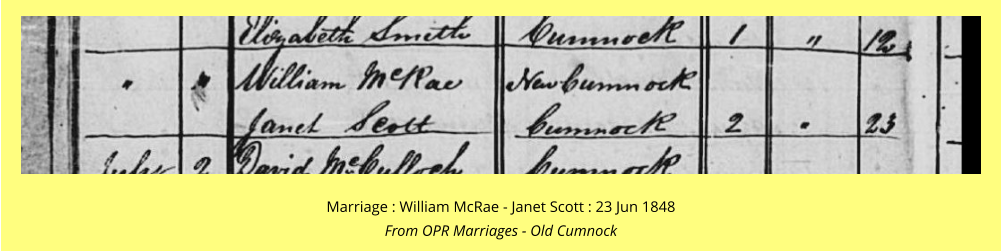 Elizabeth Smith Cumnock 1 " 12
" " William McRae New Cumnock
Janet Scott Cumnock 2 " 23
July 2 David McCulloch Cumnock
Marriage : William McRae - Janet Scott : 23 Jun 1848
From OPR Marriages - Old Cumnock